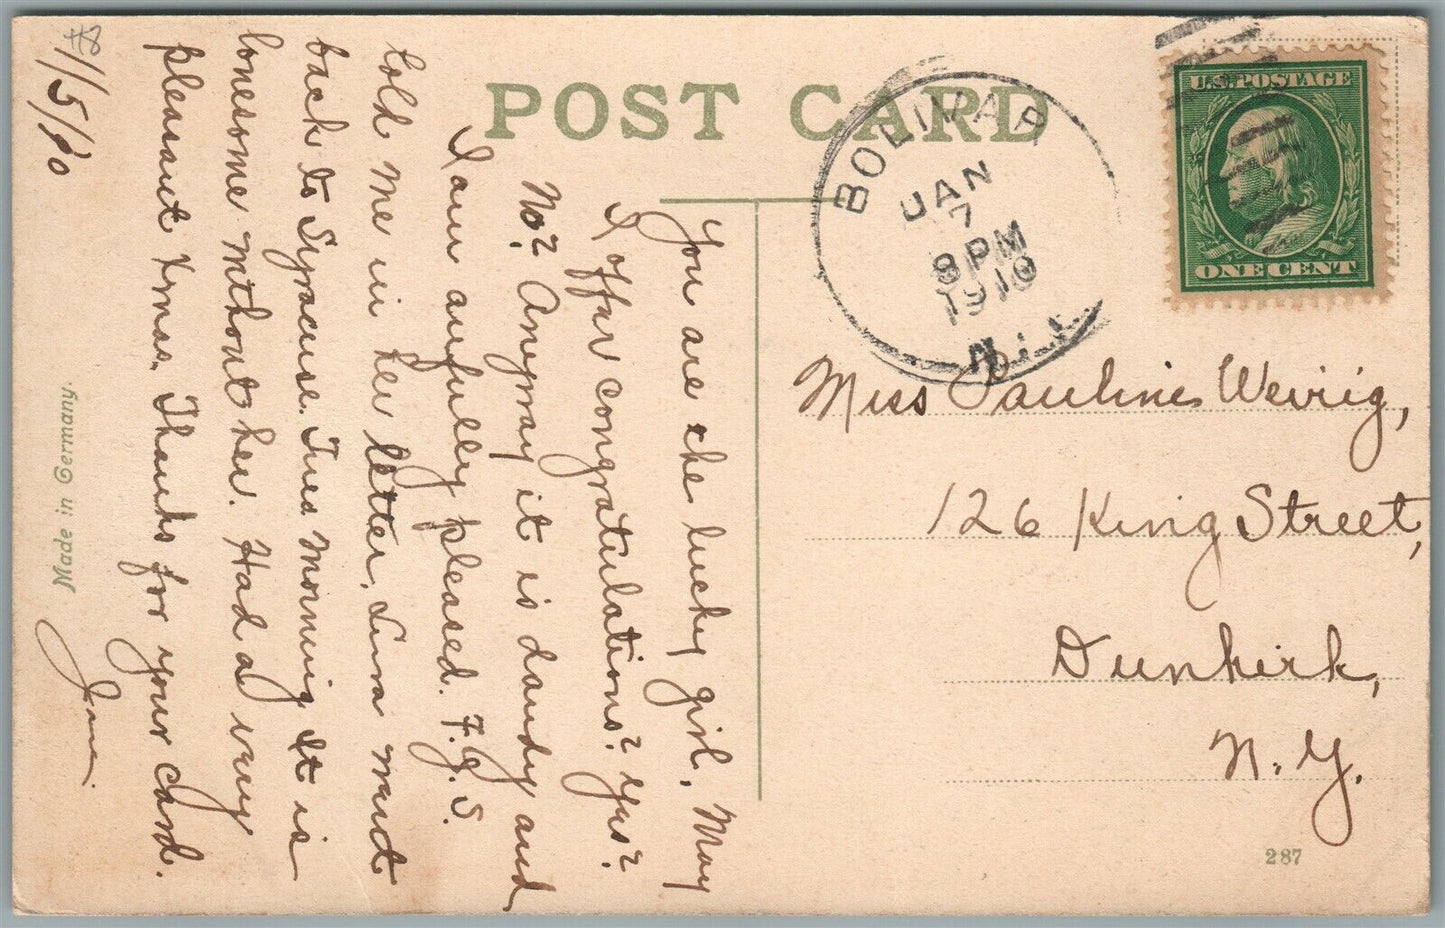 POST CARD
U.S. POSTAGE
ONE CENT
BOLIVAR
JAN
7
8 PM
1910
N.Y.
Miss Pauline Weirig,
126 King Street,
Dunkirk,
N. Y.
287
Made in Germany.
1/5/10
You are the lucky girl, May
I offer congratulations? Yes?
No? Anyway it is dandy and
I am awfully pleased. F.G.S.
told me in her letter, Lina went
back to Syracuse Tues morning It is
lonesome without her. Had a very
pleasant Xmas. Thanks for your card.
Jane.